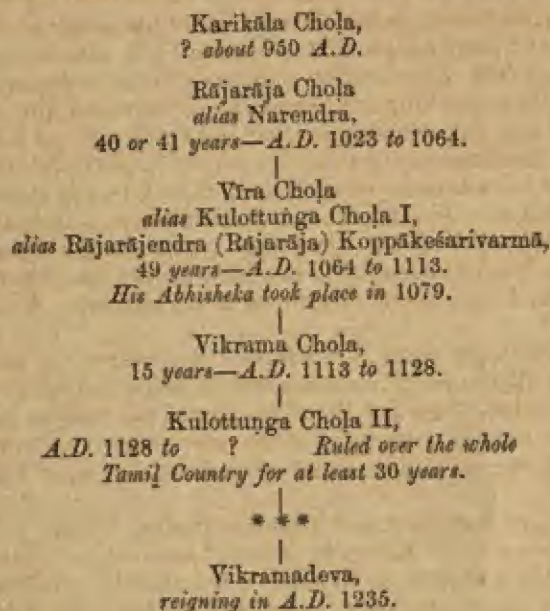 Karikāla Choḷa,
? about 950 A.D.
Rājarāja Choḷa
alias Narendra,
40 or 41 years—A.D. 1023 to 1064.
Vīra Choḷa
alias Kulottuṅga Choḷa I,
alias Rājarājendra (Rājarāja) Koppākeśarivarmā,
49 years—A.D. 1064 to 1113.
His Abhisheka took place in 1079.
Vikrama Choḷa,
15 years—A.D. 1113 to 1128.
Kulottuṇga Choḷa II,
A.D. 1128 to ? Ruled over the whole
Tamiḻ Country for at least 30 years.
* * *
Vikramadeva,
reigning in A.D. 1235.